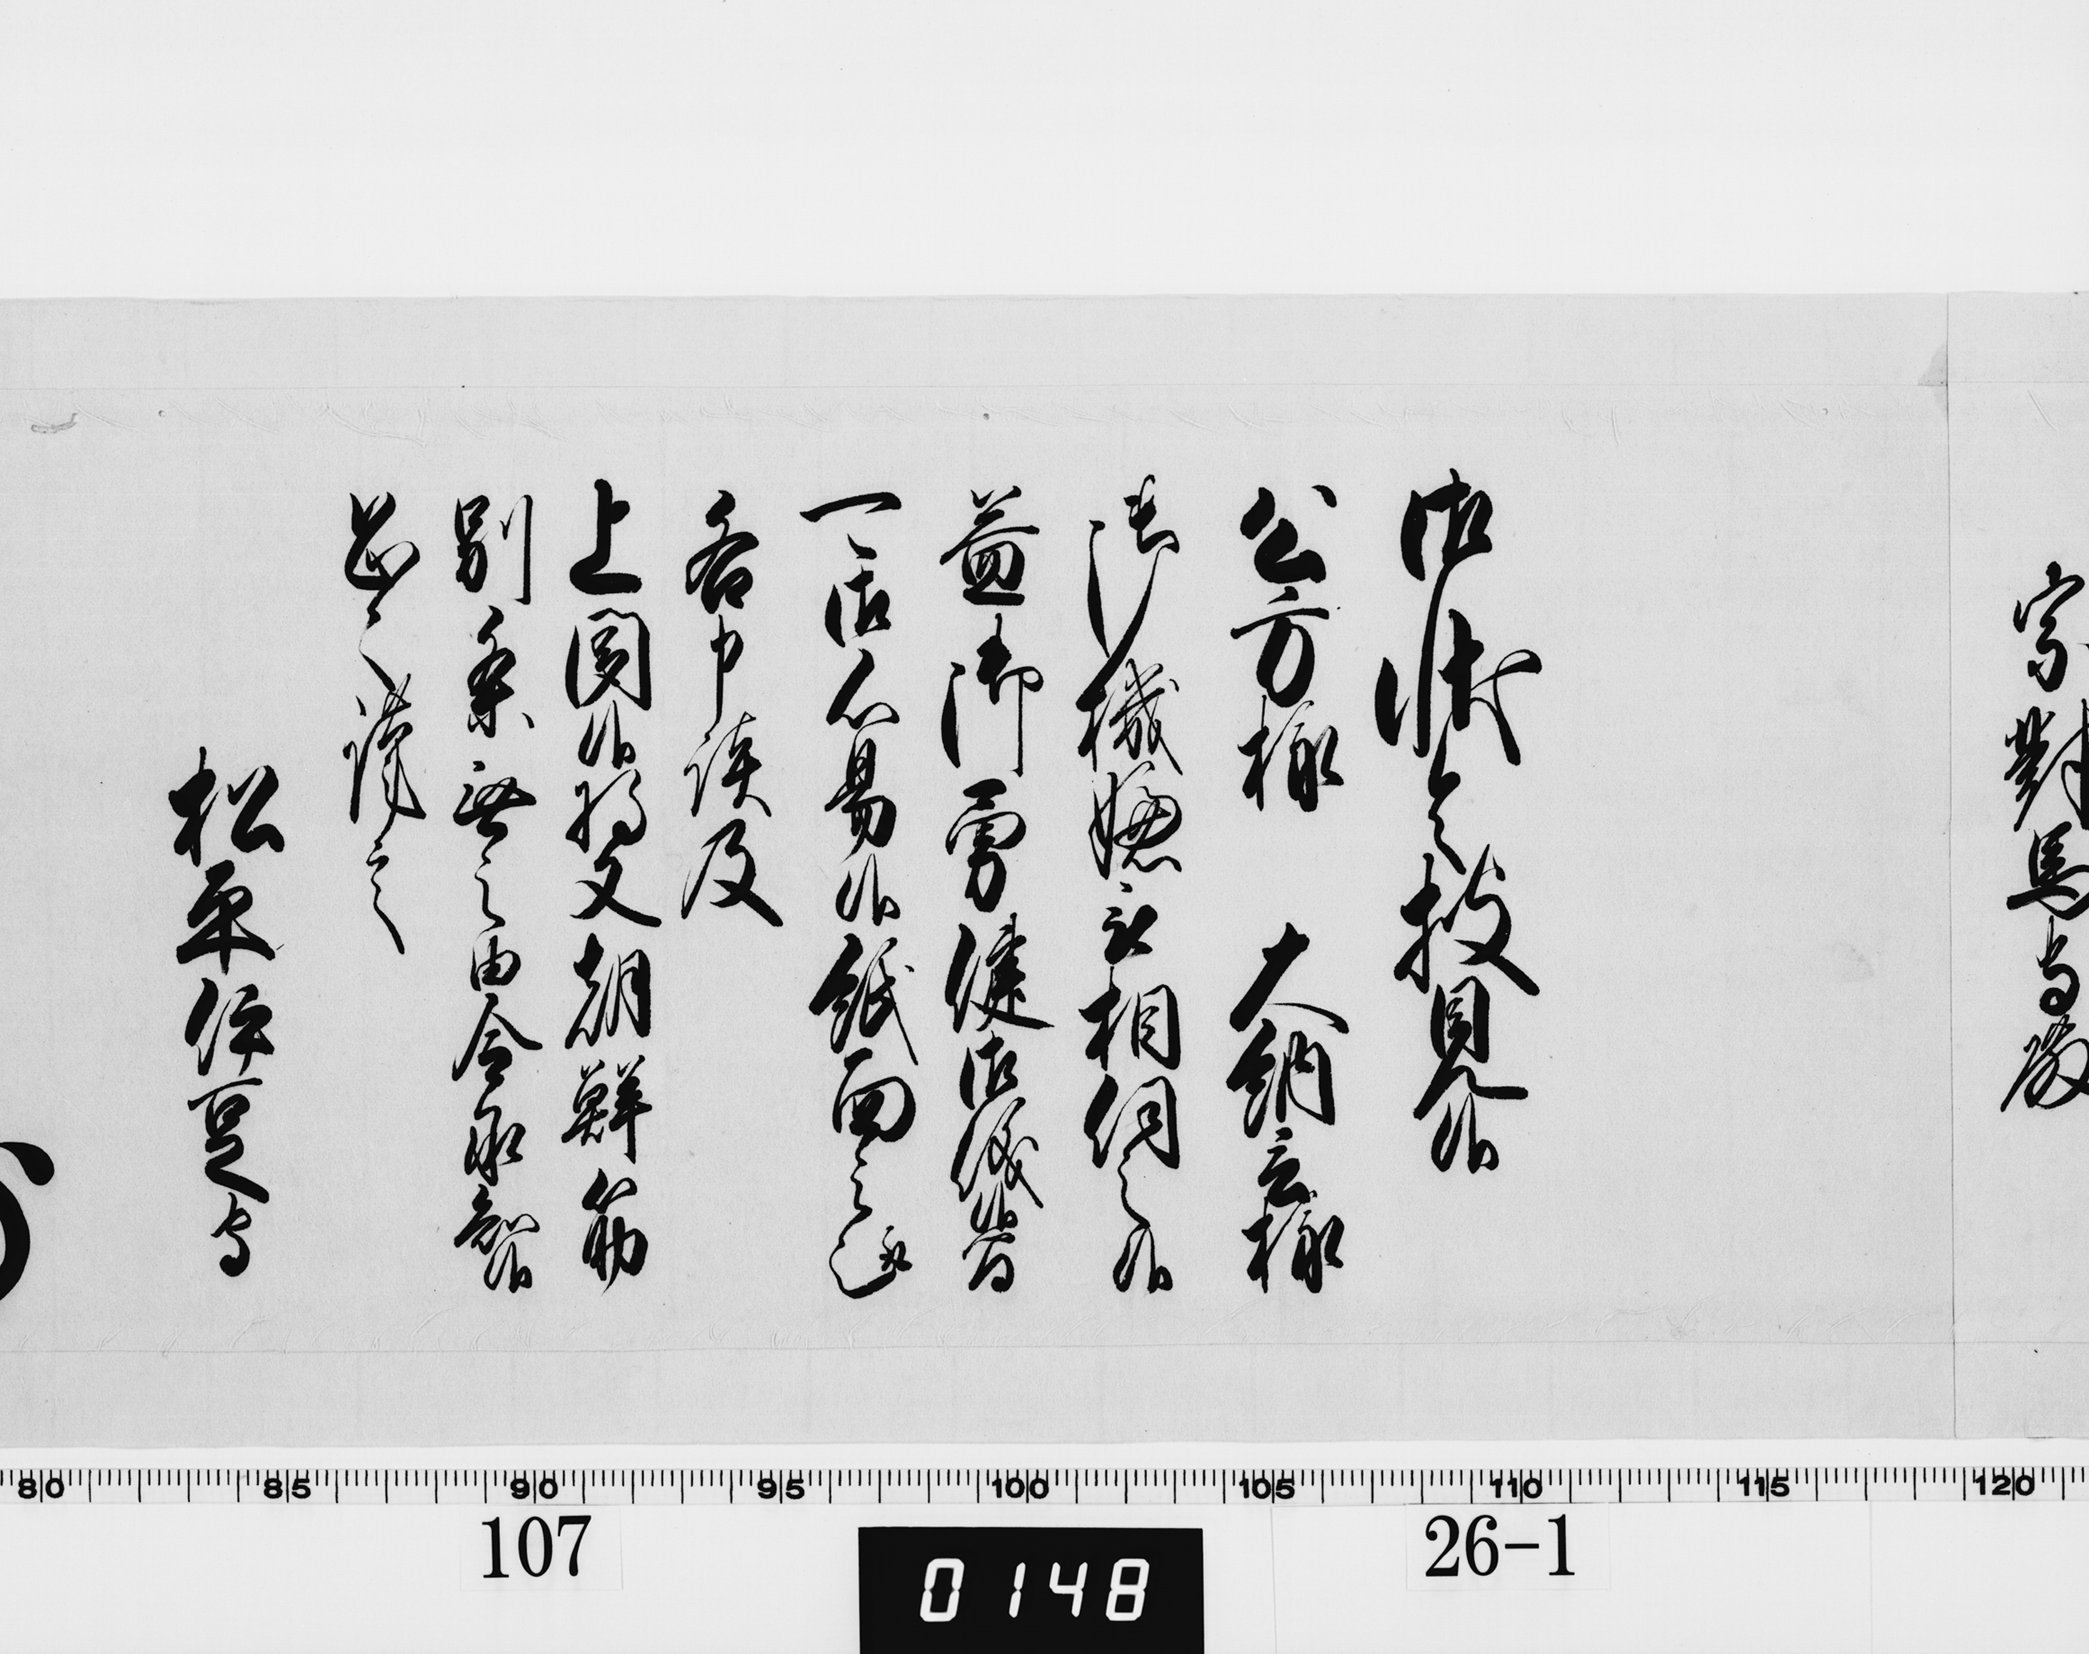 宗對馬守殿
御状令披見候
公方様 大納言様
御機嫌被相伺之候
益御勇健御儀候間
可御心易候紙面之趣
各申談及
上聞候将又朝鮮筋
別条無之由令承知候
恐々謹言
松平伊豆守
80 85 90 95 100 105 110 115 120
107 26-1
0148